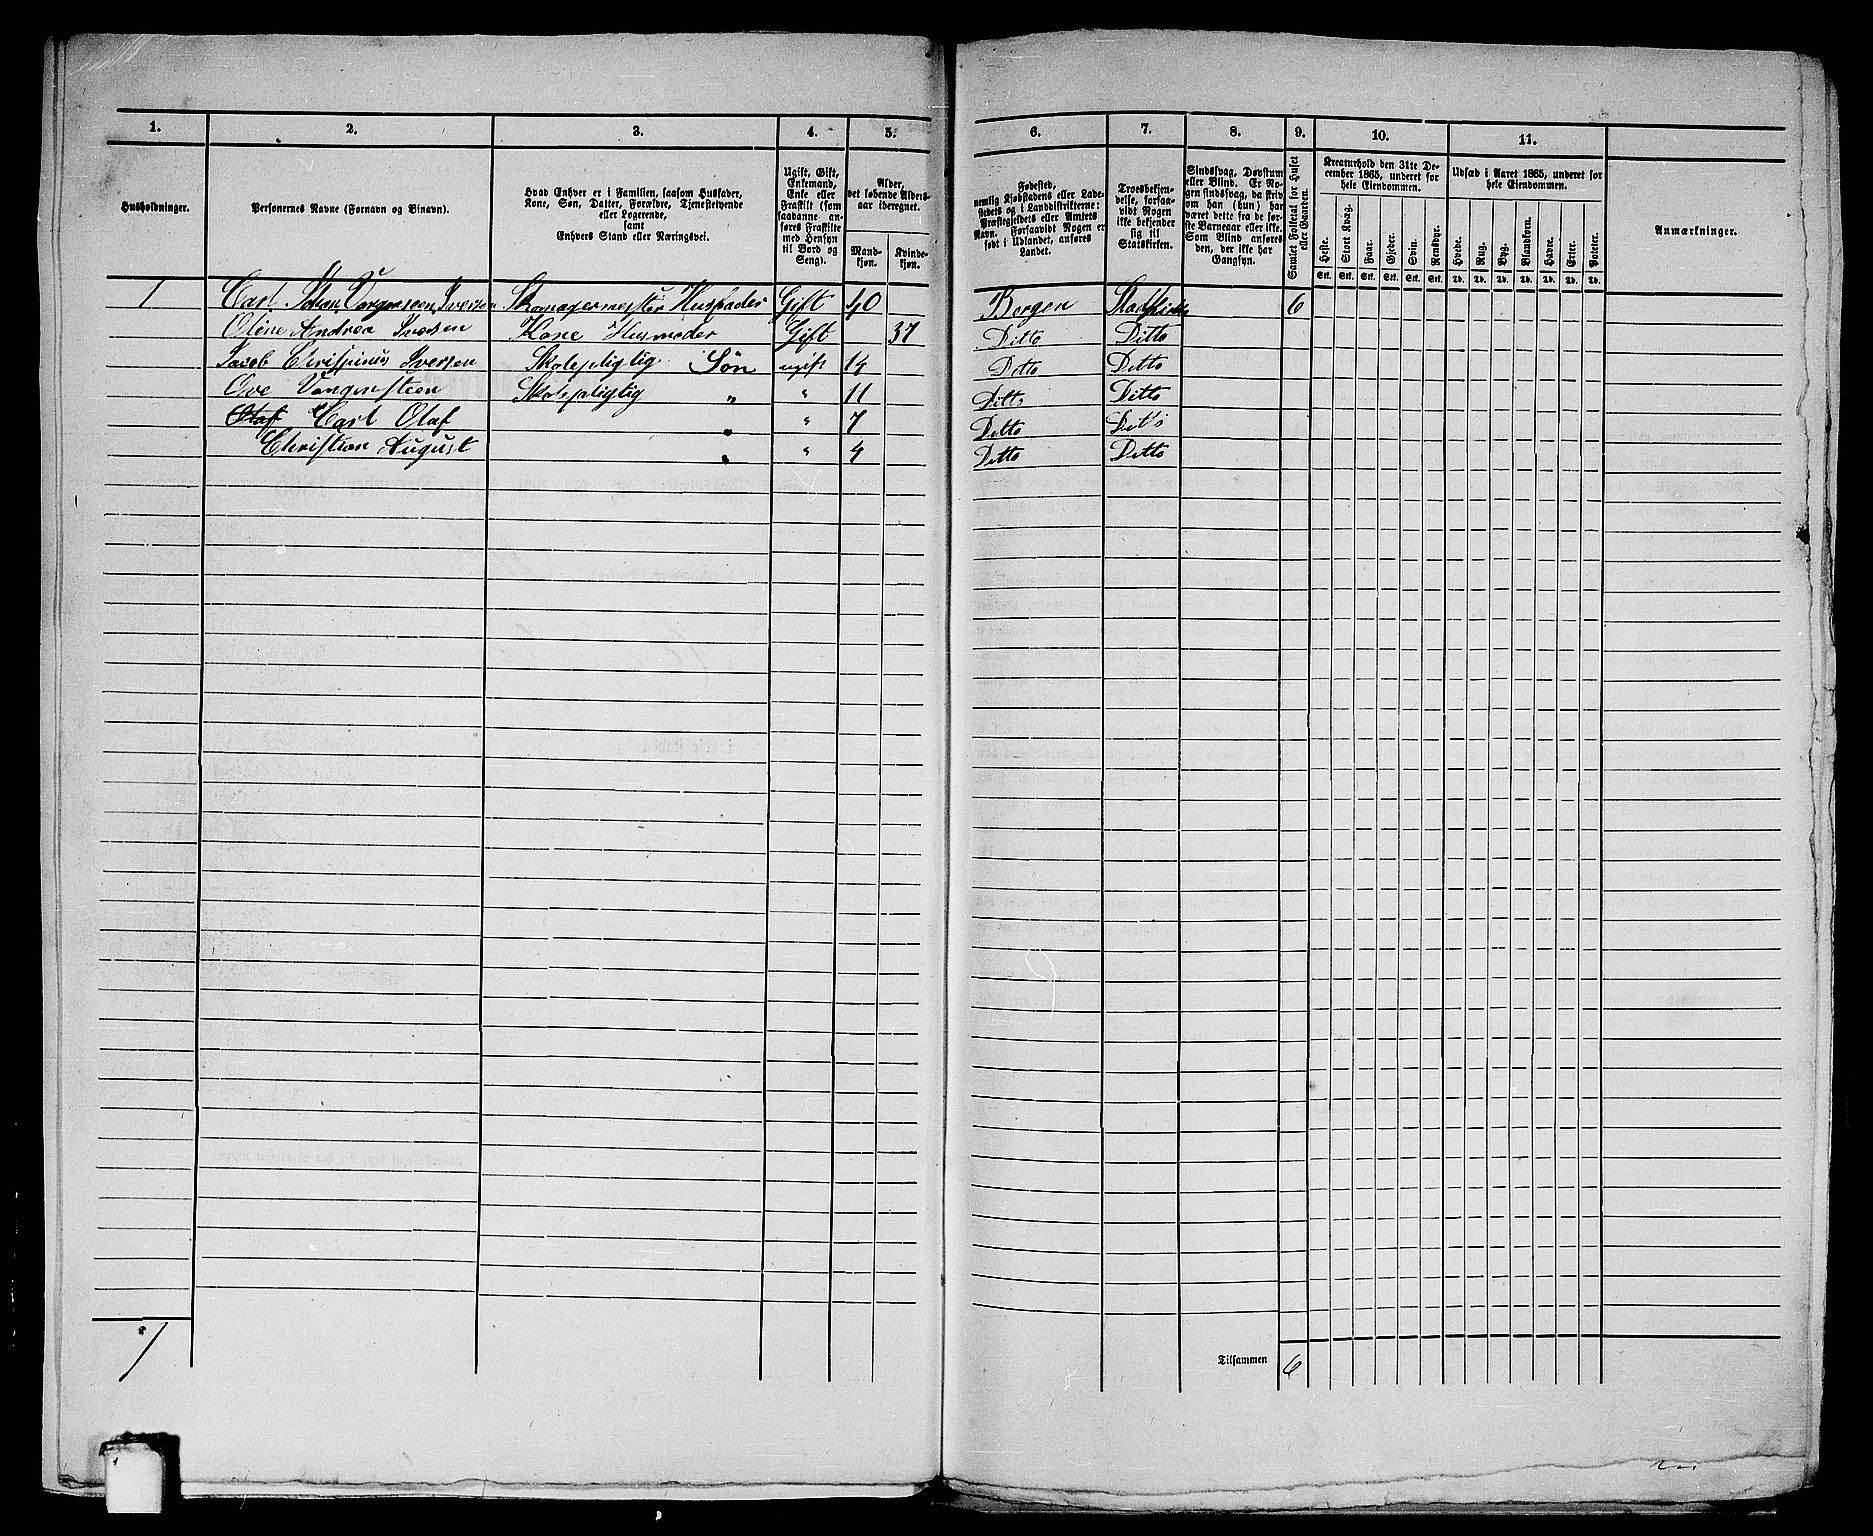 1. 2. 3. 4. 5. 6. 7. 8. 9. 10. 11.
Husholdninger.
Personernes Navne (Fornavn og Binavn).
Hvad Enhver er i Familien, saasom Husfader,
Kone, Søn, Datter, Forældre, Tjenestetyende
eller Logerende,
samt
Enhvers Stand eller Næringsvei.
Ugift, Gift,
Enkemand,
Enke eller
Fraskilt (som
saadanne an-
føres Fraskilte
med Hensyn
til Bord og
Seng).
Alder,
det løbende Alders-
aar iberegnet.
Mand-
kjøn.
Kvinde-
kjøn.
Fødested,
nemlig Kjøbstadens eller Lade-
stedets og i Landdistrikterne:
Præstegjeldets eller Amtets
Navn. Forsaavidt Nogen er
født i Udlandet, anføres
Landet.
Troesbekjen-
delse, forsaa-
vidt Nogen
ikke bekjender
sig til
Statskirken.
Sindssvag, Døvstum
eller Blind. Er No-
gen sindssvag, da skriv
om han (hun) har
været dette fra de før-
ste Barneaar eller ikke.
Som Blind anføres
den, der ikke har
Gangsyn.
Samlet Folketal for Huset
eller Gaarden.
Kreaturhold den 31te De-
cember 1865, underet for
hele Eiendommen.
Heste. Stort Kvæg. Faar. Gjeder. Svin. Rensdyr.
Stk. Stk. Stk. Stk. Stk. Stk.
Udsæd i Aaret 1865, underet for
hele Eiendommen.
Hvede. Rug. Byg. Blandkorn. Havre. Erter. Poteter.
Td. Td. Td. Td. Td. Td. Td.
Anmærkninger.
1 Carl Johan Vangensteen Iversen Skomagermester Husfader Gift 40 Bergen Statskirke 6
Oline Andrea Iversen Kone Husmoder Gift 37 Ditto Ditto
Jacob Chrispinus Iversen Skolepligtig Søn ugift 14 Ditto Ditto
Ove Vangensteen Skolepligtig " " 11 Ditto Ditto
Olaf Carl Olaf " " 7 Ditto Ditto
Christian August " " 4 Ditto Ditto
1 Tilsammen 6